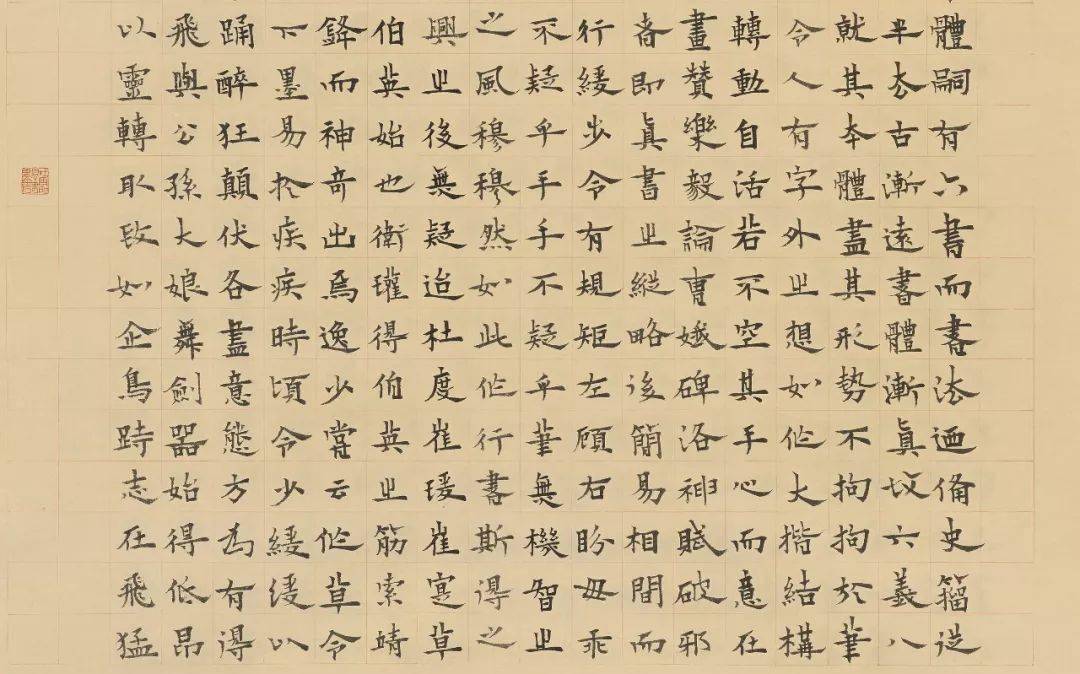 體嗣有六書而書法廼備史籀從
半去古漸遠書體漸真故六義八
就其本體盡其形勢不拘拘於筆
令人有字外之想如作大楷結構
轉動自活若不空其手心而意在
畫贊樂毅論曹娥碑洛神賦破邪
者即真書之縱略後簡易相間而
行緩步令有規矩左顧右盼毋乖
不疑乎手手不疑乎筆無機智之
之風穆穆然如此作行書斯得之
興之後無疑迨杜度崔瑗崔寔草
伯英始也衛瓘得伯英之筋索靖
鋒而神奇出焉逸少嘗云作草令
下墨易於疾疾時頃令少緩緩以
踴醉狂顛伏各盡意態方為有得
飛與公孫大娘舞劍器始得低昂
以靈轉取致如企鳥跱志在飛猛